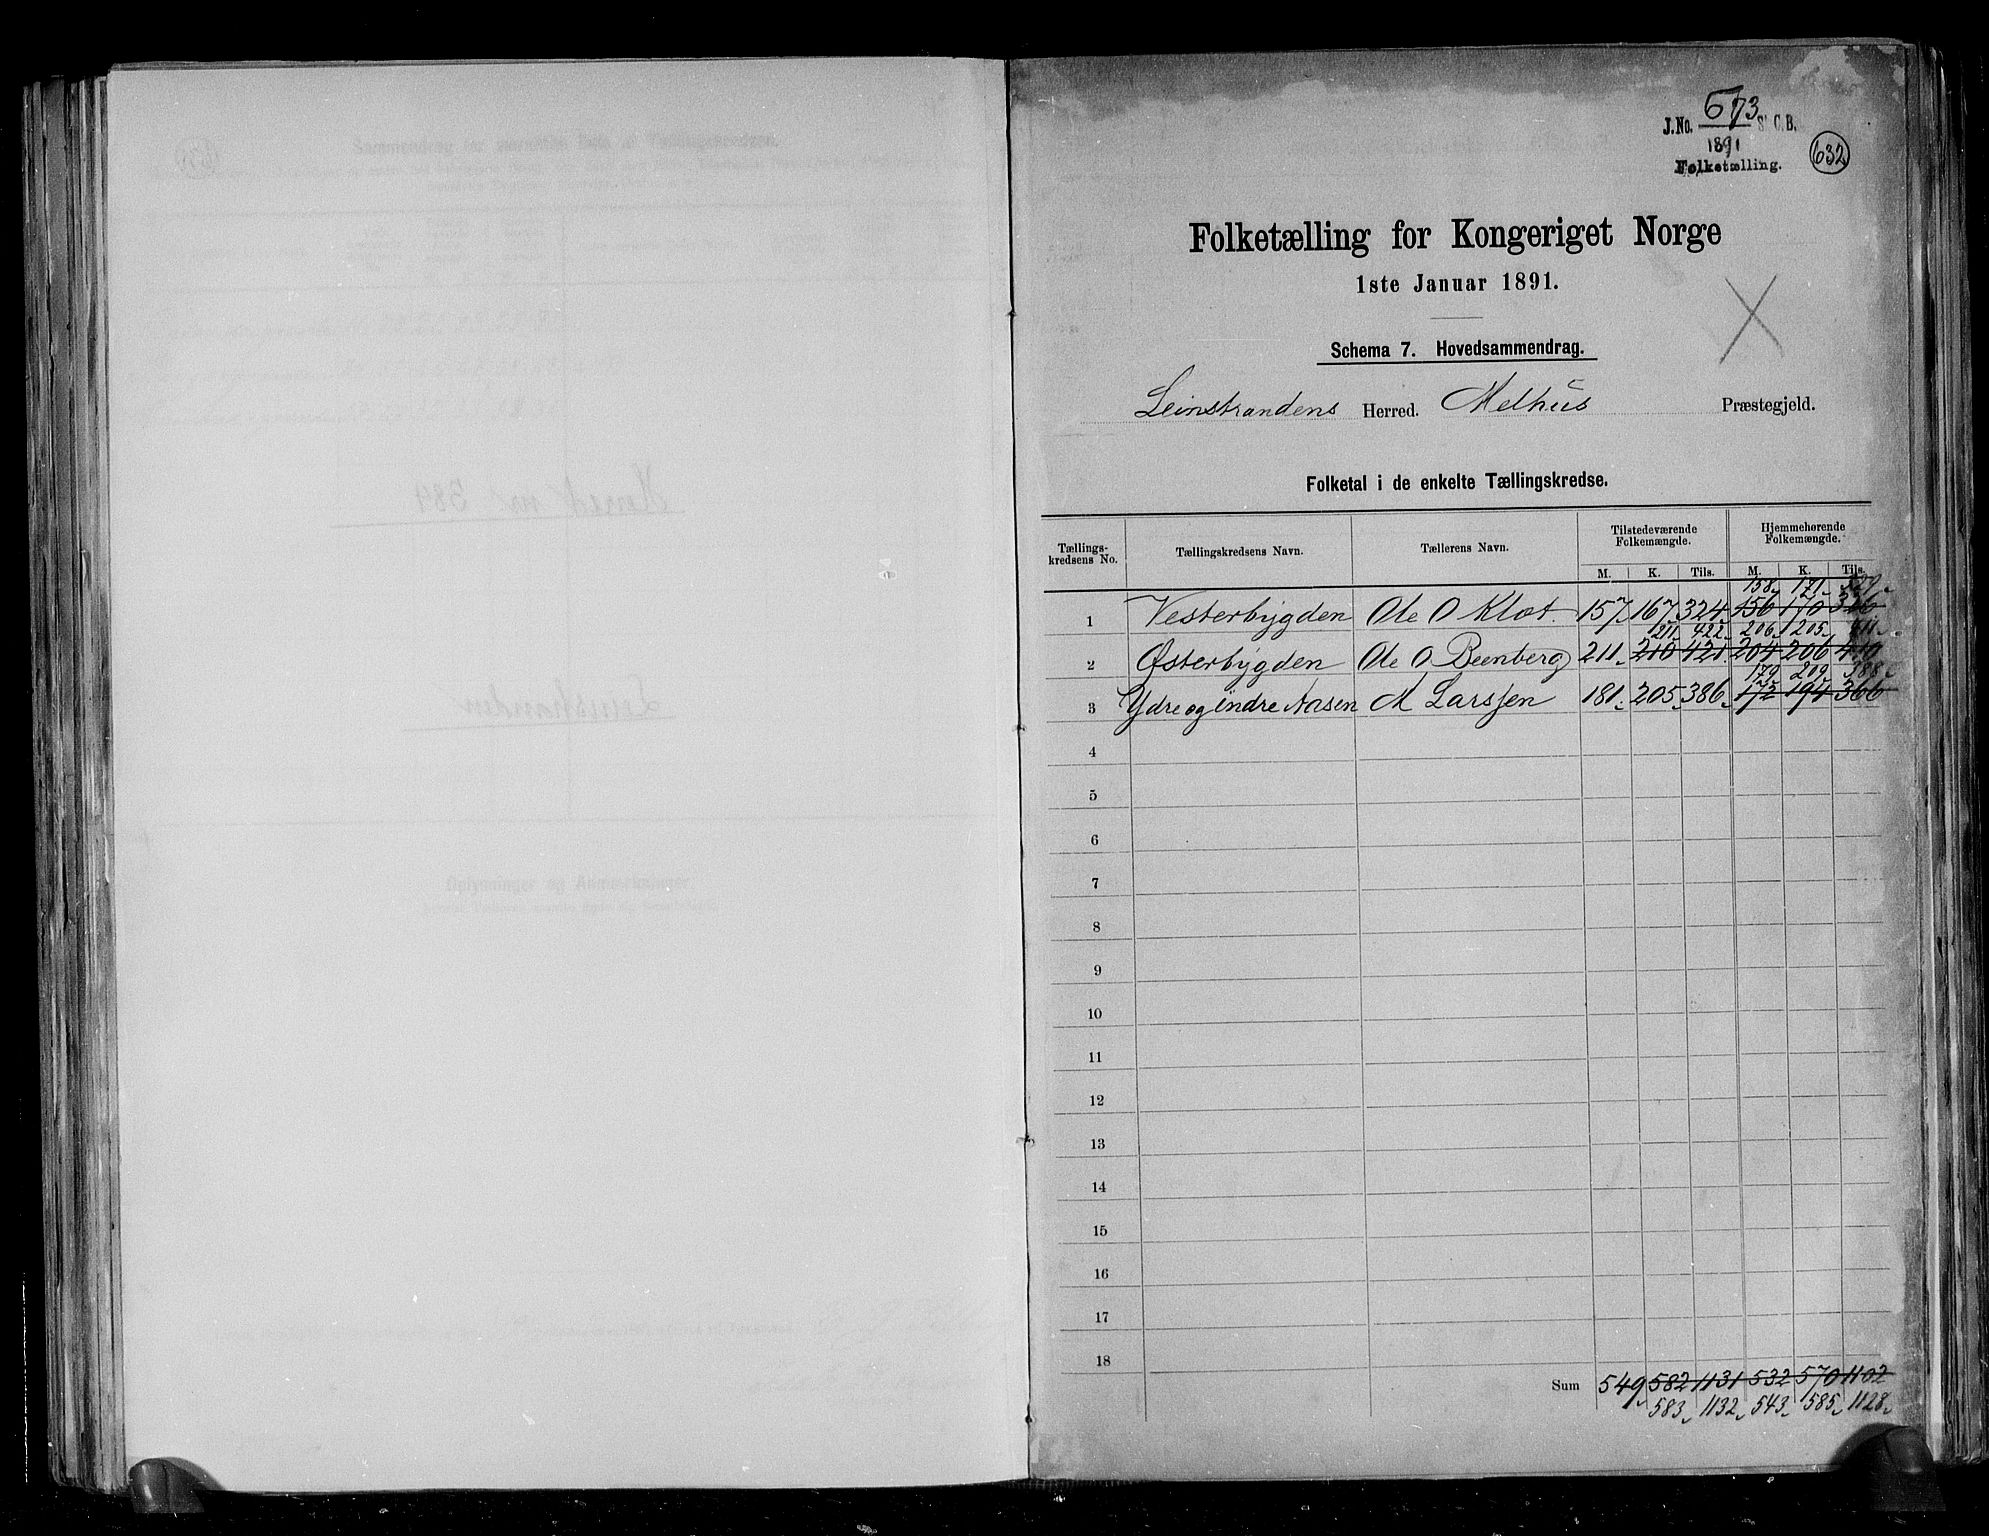 J.No. 573 S.C.B. 632
1891
Folketælling.
Folketælling for Kongeriget Norge
1ste Januar 1891.
Schema 7. Hovedsammendrag.
Leinstrandens Herred. Melhus Præstegjeld.
Folketal i de enkelte Tællingskredse.
Tællings-kredsens No. Tællingskredsens Navn. Tællerens Navn. Tilstedeværende Folkemængde. Hjemmehørende Folkemængde.
M. K. Tils. M. K. Tils.
158 171 329
1 Vesterbygden Ole O Klæt. 157 167 324 156 170 326
211 422 206 205 411
2 Østerbygden Ole O Beenberg 211 210 421 204 206 410
179 209 388
3 Ydre og indre Aasen A Larssen 181 205 386 172 194 366
4
5
6
7
8
9
10
11
12
13
14
15
16
17
18
Sum 549 582 1131 532 570 1102
583 1132 543 585 1128